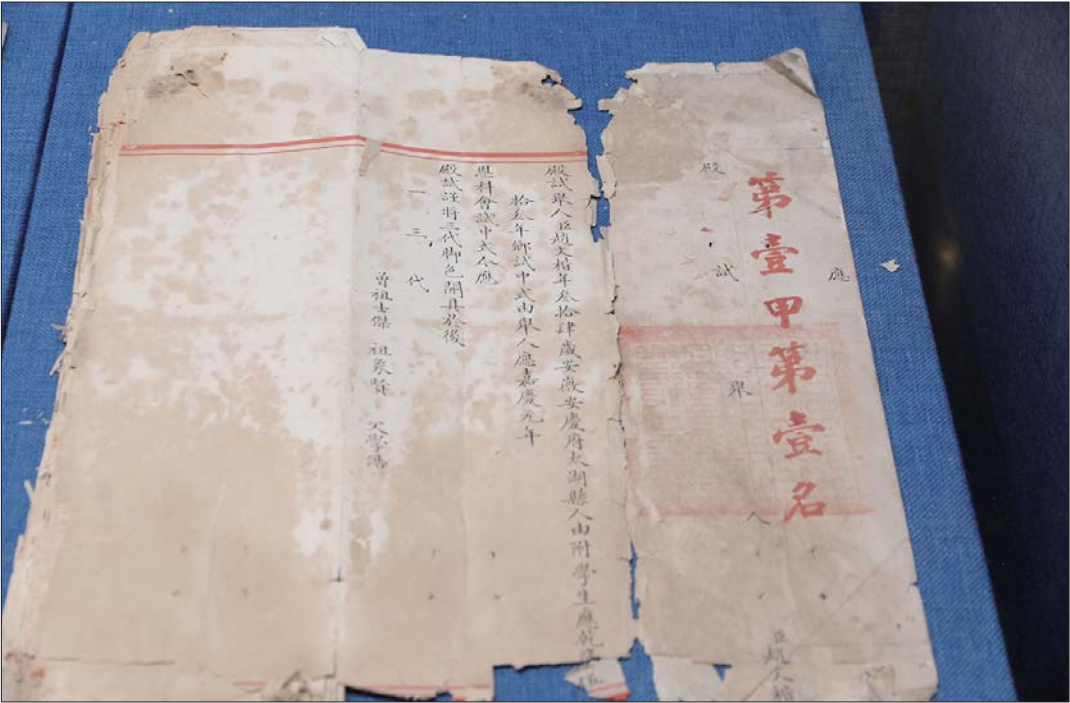 應
第壹甲第壹名
殿試舉人
臣趙文楷
殿試舉人臣趙文楷年叁拾肆歲安徽安慶府太湖縣人由附學生應乾隆伍
拾叁年鄉試中式由舉人應嘉慶元年
恩科會試中式今應
殿試謹將三代脚色開具於後
一三代
曾祖士傑 祖象賢 父學